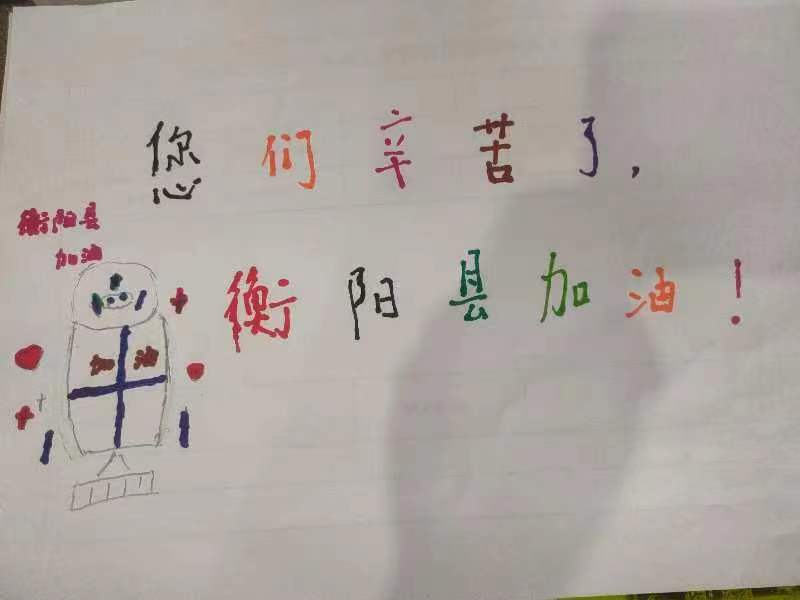 您们辛苦了，
衡阳县
加油
衡阳县加油！
加油